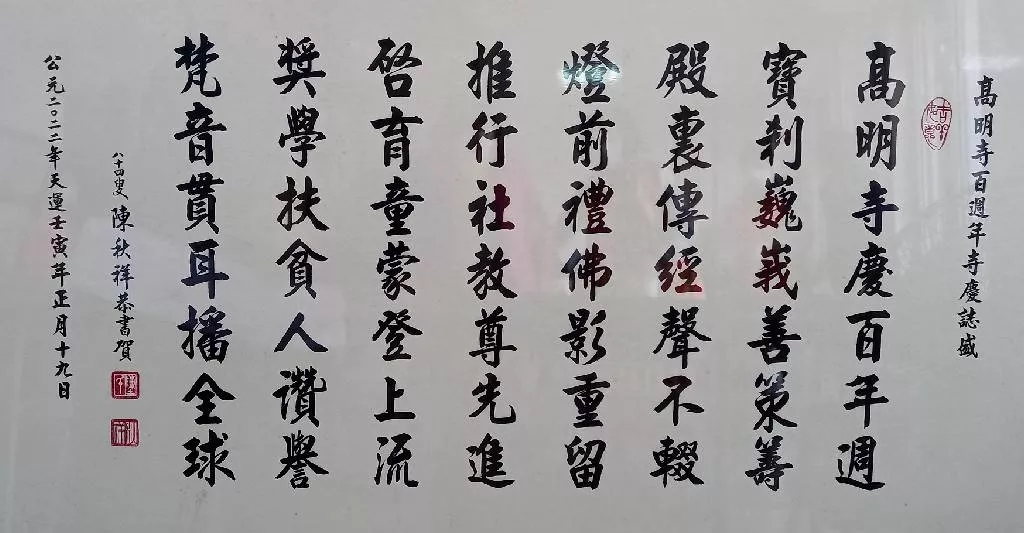 高明寺百週年寺慶誌盛
高明寺慶百年週
寶剎巍峩善策籌
殿裏傳經聲不輟
燈前禮佛影重留
推行社教尊先進
啓育童蒙登上流
奨學扶貧人讚譽
梵音貫耳播全球
八十四叟 陳秋祥恭書賀
公元二〇二二年天運壬寅年正月十九日